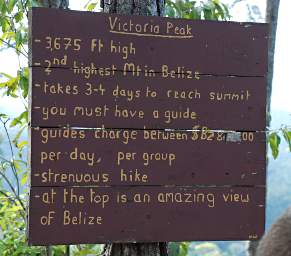 Victoria Peak
- 3,675 ft high
- 2nd highest Mt in Belize
- takes 3-4 days to reach summit
- you must have a guide
- guides charge between
per day, per group
- strenuous hike
- at the top is an amazing view
of Belize